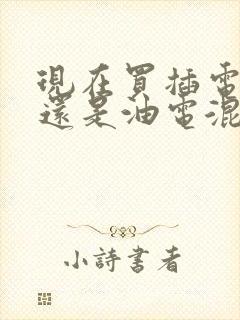 現在買插電
還是油電混
小詩書者